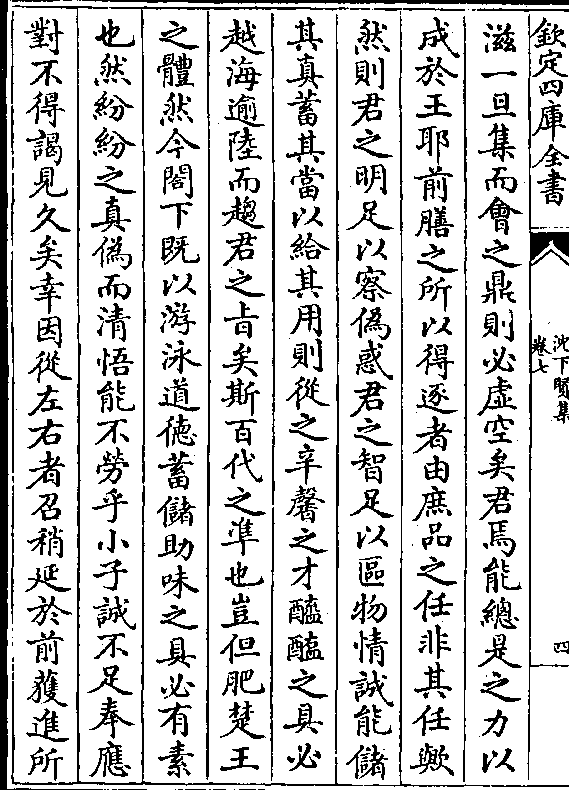 欽定四庫全書
沈下賢集
卷七
四
滋一旦集而會之鼎則必虛空矣君焉能總是之力以
成於王耶前膳之所以得逐者由庶品之任非其任歟
然則君之明足以察偽惑君之智足以區物情誠能儲
其真蓄其當以給其用則從之辛馨之才醯醢之具必
越海逾陸而趨君之旨矣斯百代之準也豈但肥楚王
之體然今閣下既以游泳道德蓄儲助味之具必有素
也然紛紛之真偽而清悟能不勞乎小子誠不足奉應
對不得謁見久矣幸因從左右者召稍延於前獲進所